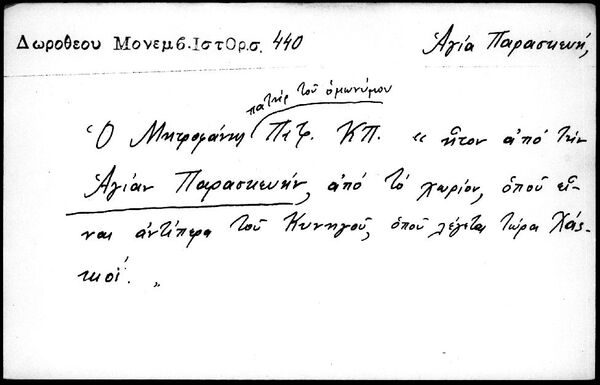 Δωροθεου Μονεμβ.ΙστΟρ.σ. 440
Ἁγία Παρασκευή,
πατὴρ τοῦ ὁμωνύμου
Ὁ Μητροφάνης Πατρ. ΚΠ. " ἦτον ἀπό τὴν
Ἁγίαν Παρασκευήν, ἀπό τὸ χωρίον, ὁποῦ εἶ-
ναι ἀντίπερα τοῦ Κυνηγοῦ, ὁποῦ λέγεται τώρα Χάσ-
κιοϊ. „